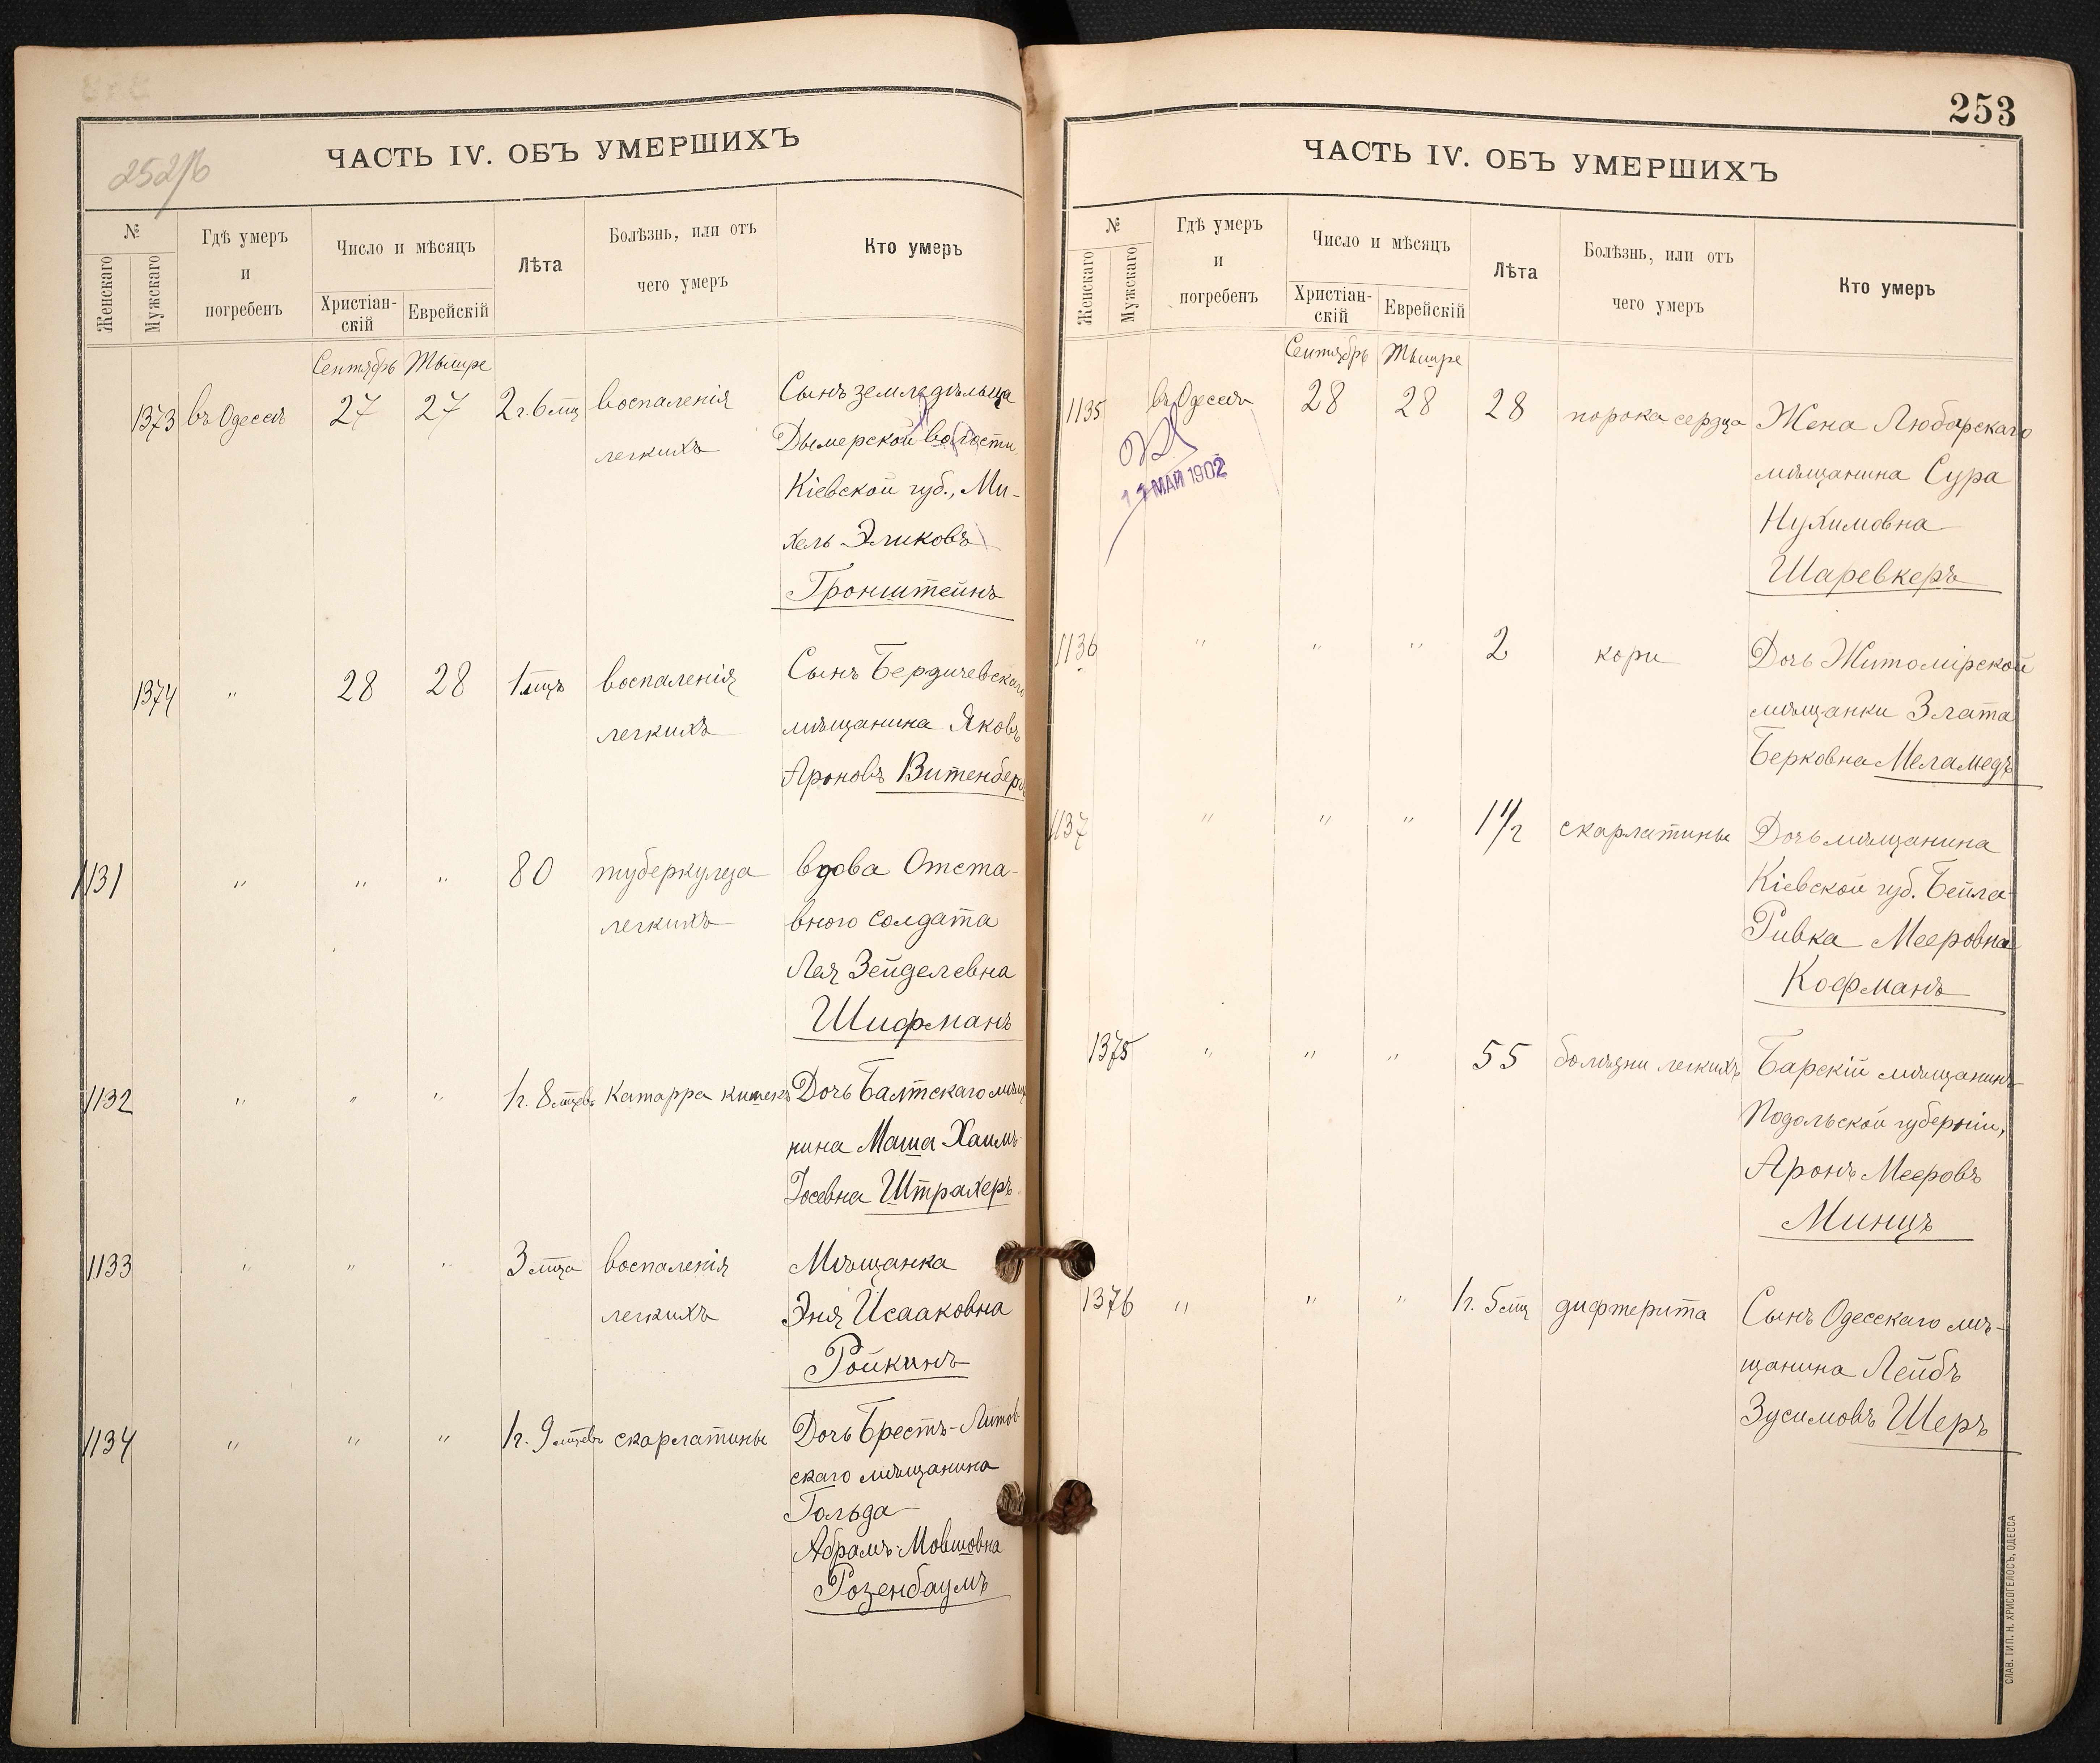 252/б
ЧАСТЬ IV. ОБЪ УМЕРШИХЪ
№
Женскаго
Мужскаго
Гдѣ умеръ
и
погребенъ
Число и мѣсяцъ
Христіан-
скій
Еврейскій
Лѣта
Болѣзнь, или отъ
чего умеръ
Кто умеръ
Сентябрь Тышре
1373 въ Одессѣ 27 27 2 г. 6 мц воспаленія Сынъ земледѣльца
легкихъ Дымерской волости
Кіевской губ., Ми-
хель Эликовъ
Гронштейнъ
1374 " 28 28 1 мцъ воспаленія Сынъ Бердичевскаго
легкихъ мѣщанина Яковъ
Ароновъ Витенбергъ
1131 " " " 80 туберкулеза вдова Отста-
легкихъ вного солдата
Лея Зейделевна
Шифманъ
1132 " " " 1 г. 8 мцевъ Катарра кишекъ Дочь Балтскаго мѣща
нина Маша Хаимъ-
Іосевна Штрахеръ
1133 " " " 3 мца воспаленія Мѣщанка
легкихъ Эня Исааковна
Ройкинъ
1134 " " " 1 г. 9 мцевъ скарлатины Дочь Брестъ-Литов-
скаго мѣщанина
Гольда
Абрамъ-Мовшовна
Розенбаумъ
253
ЧАСТЬ IV. ОБЪ УМЕРШИХЪ
№
Женскаго
Мужскаго
Гдѣ умеръ
и
погребенъ
Число и мѣсяцъ
Христіан-
скій
Еврейскій
Лѣта
Болѣзнь, или отъ
чего умеръ
Кто умеръ
Сентябрь Тышре
1135 въ Одессѣ 28 28 28 порока сердца Жена Любарскаго
11 МАЙ 1902
мѣщанина Сура
Нухимовна
Шаревкеръ
1136 " " " 2 кори Дочь Житомірской
мѣщанки Злата
Берковна Меламедъ
1137 " " " 1 1/2 скарлатины Дочь мѣщанина
Кіевской губ. Бейла-
Ривка Мееровна
Кофманъ
1375 " " " 55 болѣзни легкихъ Барскій мѣщанинъ
Подольской губерніи,
Аронъ Мееровъ
Минцъ
1376 " " " 1 г. 5 мц дифтерита Сынъ Одесскаго мѣ-
щанина Лейбъ
Зусимовъ Шеръ
СЛАВ. ТИП. Н. ХРИСОГЕЛОСЪ, ОДЕССА